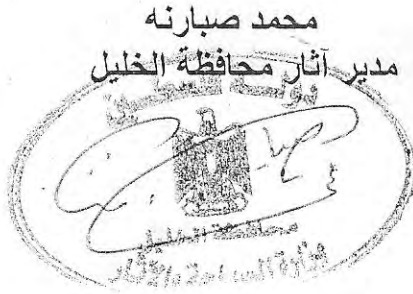 محمد صبارنه
مدير آثار محافظة الخليل
دولة فلسطين
محافظة الخليل
وزارة السياحة والآثار